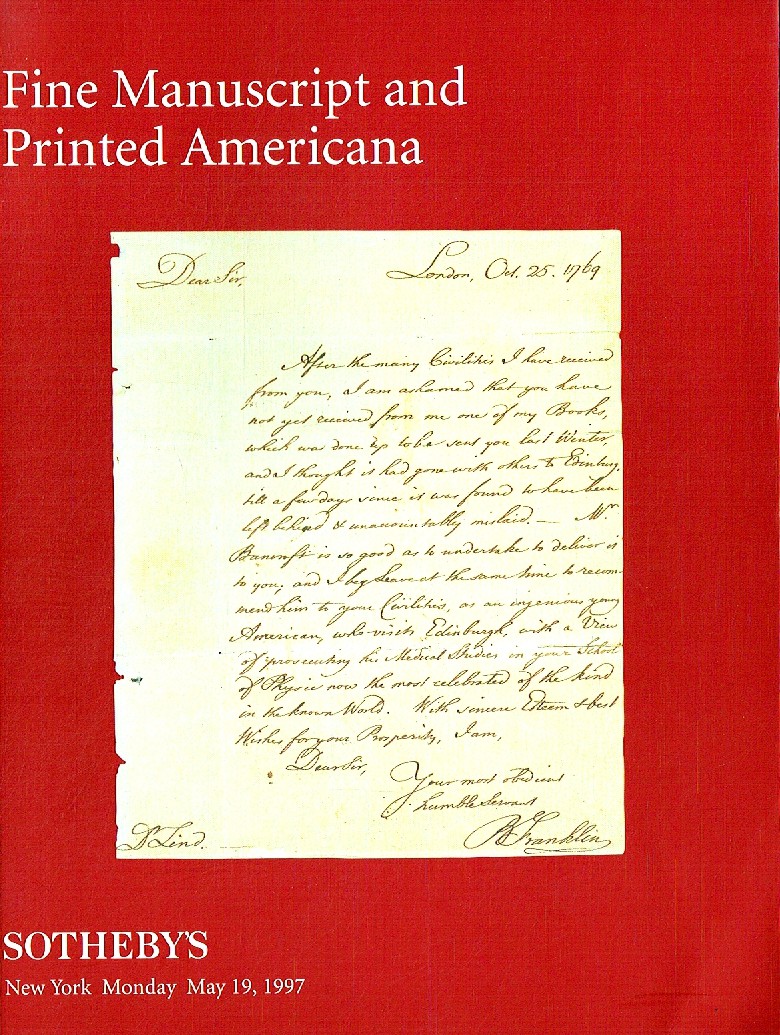 Fine Manuscript and
Printed Americana
Dear Sir,
London, Oct. 25. 1769
After the many Civilities I have received
from you, I am ashamed that you have
not yet received from me one of my Books,
which was done up to be sent you last Winter,
and I thought it had gone with others to Edinburg,
till a few days since it was found to have been
left behind & unaccountably mislaid. — Mr.
Bancroft is so good as to undertake to deliver it
to you; and I beg Leave at the same time to recom-
mend him to your Civilities, as an ingenious young
American, who visits Edinburgh, with a View
of prosecuting his Medical Studies in your School
of Physic now the most celebrated of the kind
in the known World. With sincere Esteem & best
Wishes for your Prosperity, I am,
Dear Sir,
Your most obedient
humble Servant
B Franklin
Dr Lind.
SOTHEBY'S
New York Monday May 19, 1997